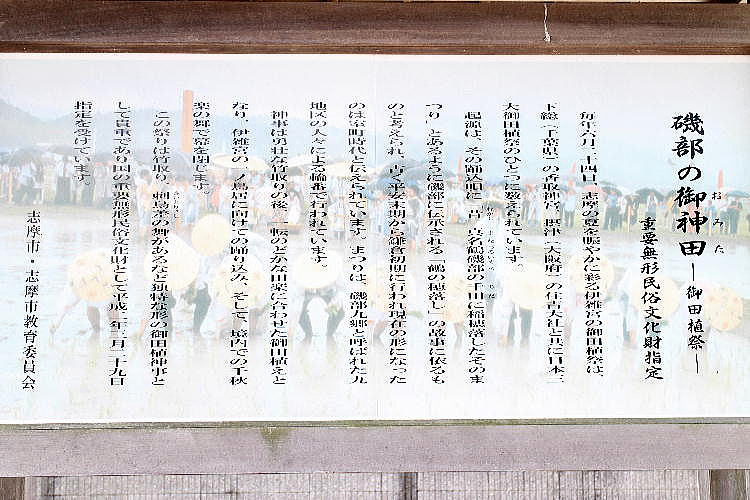 磯部の御神田 ―御田植祭―
おみた
重要無形民俗文化財指定
毎年六月二十四日、志摩の夏を賑やかに彩る伊雑宮の御田植祭は、
下総(千葉県)の香取神宮、摂津(大阪府)の住吉大社と共に日本三
大御田植祭のひとつに数えられています。
起源は、その踊込唄に「昔 真名鶴磯部の千田に稲穂落したそのま
つり」とあるように磯部に伝承される「鶴の穂落し」の故事に依るも
のと考えられ、古く平安末期から鎌倉初期に行われ現在の形になった
のは室町時代と伝えられています。まつりは、磯部九郷と呼ばれた九
地区の人々による輪番で行われています。
神事は勇壮な竹取りの後、一転のどかな田楽に合わせた御田植えと
なり、伊雑宮の一ノ鳥居に向けての踊り込み、そして、境内での千秋
楽の舞で幕を閉じます。
この祭りは竹取り、刺鳥差の舞があるなど独特な形の御田植神事と
して貴重であり国の重要無形民俗文化財として平成二年三月二十九日
指定を受けています。
志摩市・志摩市教育委員会